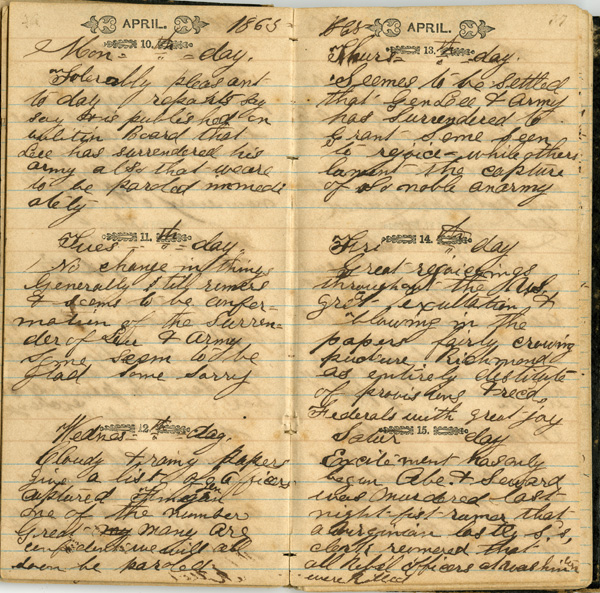 APRIL. 1865
Mon- 10. th -day.
Tolerably pleasant
to day reports say
say so is published on
bulitin Board that
Lee has surrendered his
army also that we are
to be paroled immedi
ately
Tues- 11. th -day.
No change in things
Generally still rumers
& seems to be confer-
mation of the Surren-
der of Lee & Army
some seem to be
glad some sorry
Wednes- 12 th -day.
Cloudy & rainy papers
give a list of officers
captured
one of the number
Great many are
confident we will all
soon be paroled.
1865 APRIL.
Thurs- 13. th -day.
Seems to be settled
that Gen Lee & Army
has surrendered to
Grant Some seem
to rejoice- while others
lament the capture
of so noble an army
Fri 14. th day
Great rejoicings
throughout the U.S.
great exultation &
blowing in the
papers fairly crowing
picture Richmond
as entirely destitute
of provisions & recd
Federals with great joy
Satur 15. day
Excitement has only
began Abe & Seward
was murdered last
night- 1st rumor that
a Virginian lastly S.S,
clerk rumered that
all officers at Washin
were killed